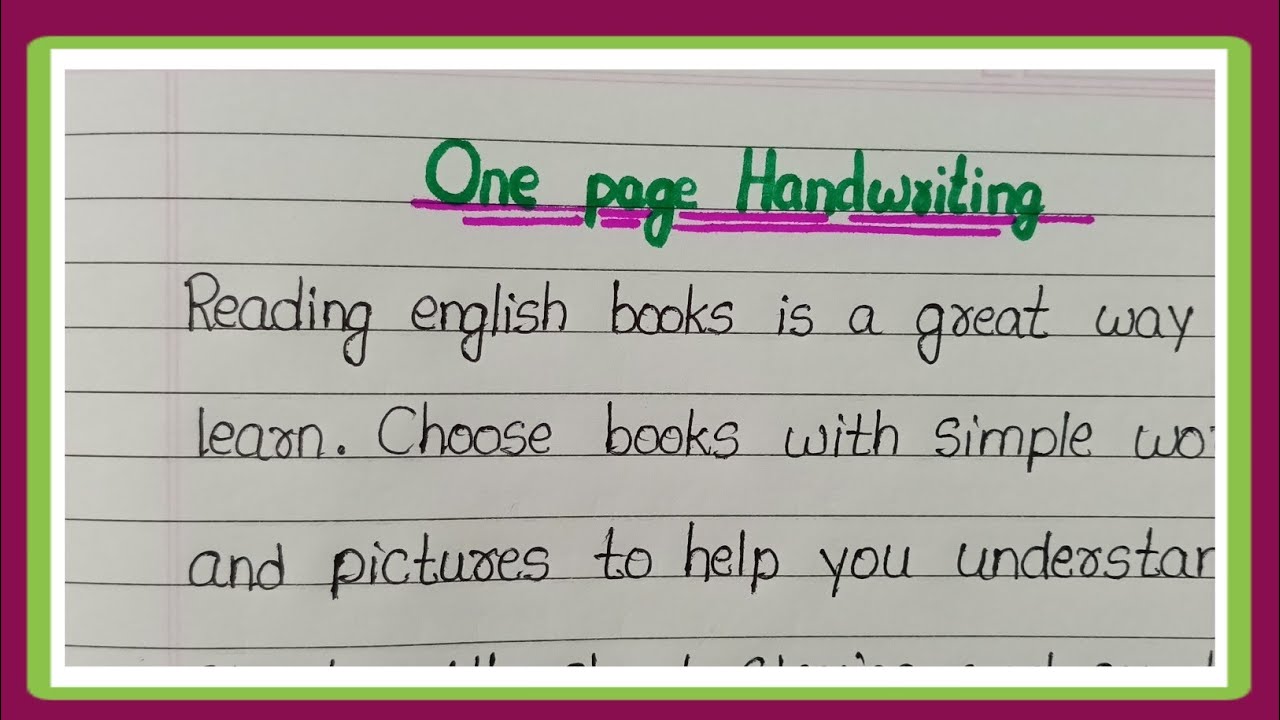 One page Handwriting
Reading english books is a great way
learn. Choose books with simple
and pictures to help you